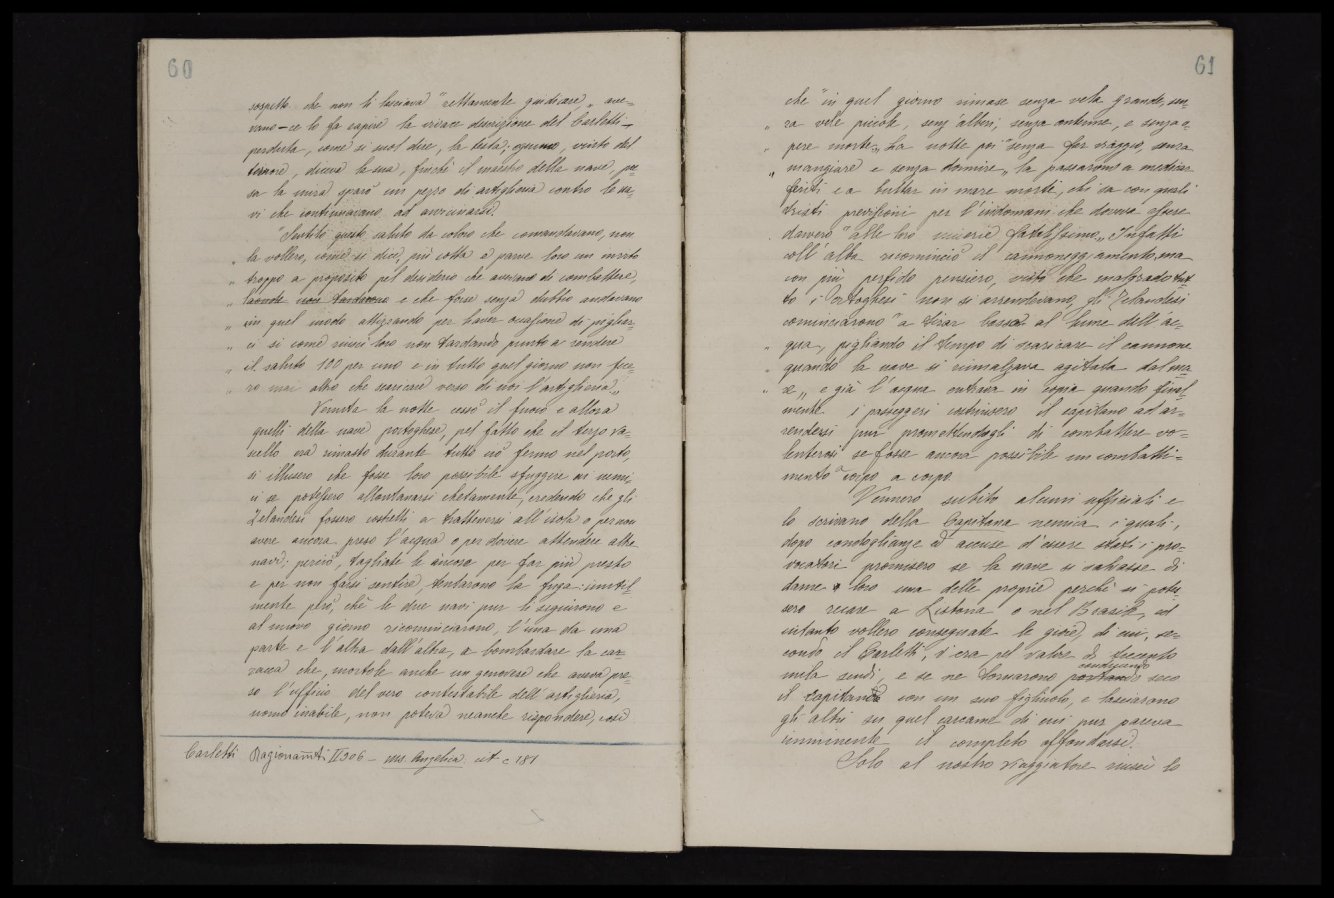 60
sospetto che non li lasciava "rettamente giudicare„ ave=
vano – ce lo fa sapire la vivace descrizione del Carletti –
perduta, come si suol dire, la testa; ognuno, vinto dal
terrore, diceva la sua, finchè il maestro della nave, pre=
sa la mira sparò un pezzo di artiglieria contro le na=
vi che continuavano ad avvicinarsi.
"Sentito questo saluto da coloro che comandavano, non
„ la vollero, come si dice, più cotta e parve loro un invito
„ troppo a proposito pel desiderio che avevano di combattere,
„ laonde non tardarono e che forse senza dubbio andavano
„ in quel modo attizzando per haver occasione di pigliar=
„ ci si come riuscì loro non tardando punto a rendere
„ il saluto 100 per uno e in tutto quel giorno non fece=
„ ro mai altro che scaricare verso di noi l'artiglieria„
Venuta la notte cessò il fuoco e allora
quelli della nave portoghese, pel fatto che il terzo va=
scello era rimasto durante tutto ciò fermo nel porto
si illusero che fosse loro possibile sfuggire ai nemi=
ci se potessero allontanarsi chetamente, credendo che gli
Zelandesi fossero costretti a trattenersi all'isola o per non
avere ancora preso l'acqua o per dovere attendere altre
navi; perciò, tagliate le àncore per far più presto
e per non farsi sentire, tentarono la fuga: inutil=
mente però, chè le due navi pur li seguirono e
al nuovo giorno ricominciarono, l'una da una
parte e l'altra dall'altra, a bombardare la car=
racca che, mortole anche un genovese che aveva pre=
so l'ufficio del vero contestabile dell'artiglieria,
uomo inabile, non poteva neanche rispondere, così
Carletti Ragionamti II 306 – ms. Angelica cit c 181
61
che "in quel giorno rimase senza vela grande, sen=
„ za vele piccole, senz'alberi, senza antenne, e senza o=
„ pere morte„ La notte poi "senza far viaggio, senza
„ mangiare e senza dormire„ la passarono a medicar
feriti e a buttar in mare morti, chi sa con quali
tristi previsioni per l'indomani che doveva essere
davvero "alle loro miserie fatalissimo„ Infatti
coll'alba ricominciò il cannoneggiamento, ma
con più perfido pensiero, visto che malgrado tut=
to i Portoghesi non si arrendevano, gli Zelandesi
cominciarono "a tirar basso al lume dell'ac=
„ qua, pigliando il tempo di scaricare il cannone
„ quando la nave si rimalzava agitata dal ma=
„ re„ e già l'acqua entrava in copia quando final=
mente i passeggeri costrinsero il capitano ad ar=
rendersi pur promettendogli di combattere vo=
lenterosi se fosse ancora possibile un combatti=
mento a corpo a corpo.
Vennero subito alcuni ufficiali e
lo scrivano della Capitana nemica i quali,
dopo condoglianze ed accuse d'essere stati i pro=
vocatori promisero se la nave si salvasse di
darne a loro una delle proprie perchè si potes=
sero recare a Lisbona o nel Brasile, ed
intanto vollero consegnate le gioie, di cui, se=
condo il Carletti, v'era pel valore di trecento
mila scudi, e se ne tornarono portando conducendo seco
il capitano con un suo figliuolo, e lasciarono
gli altri su quel carcame di cui pur pareva
imminente il completo affondarsi.
Solo al nostro viaggiatore riuscì lo